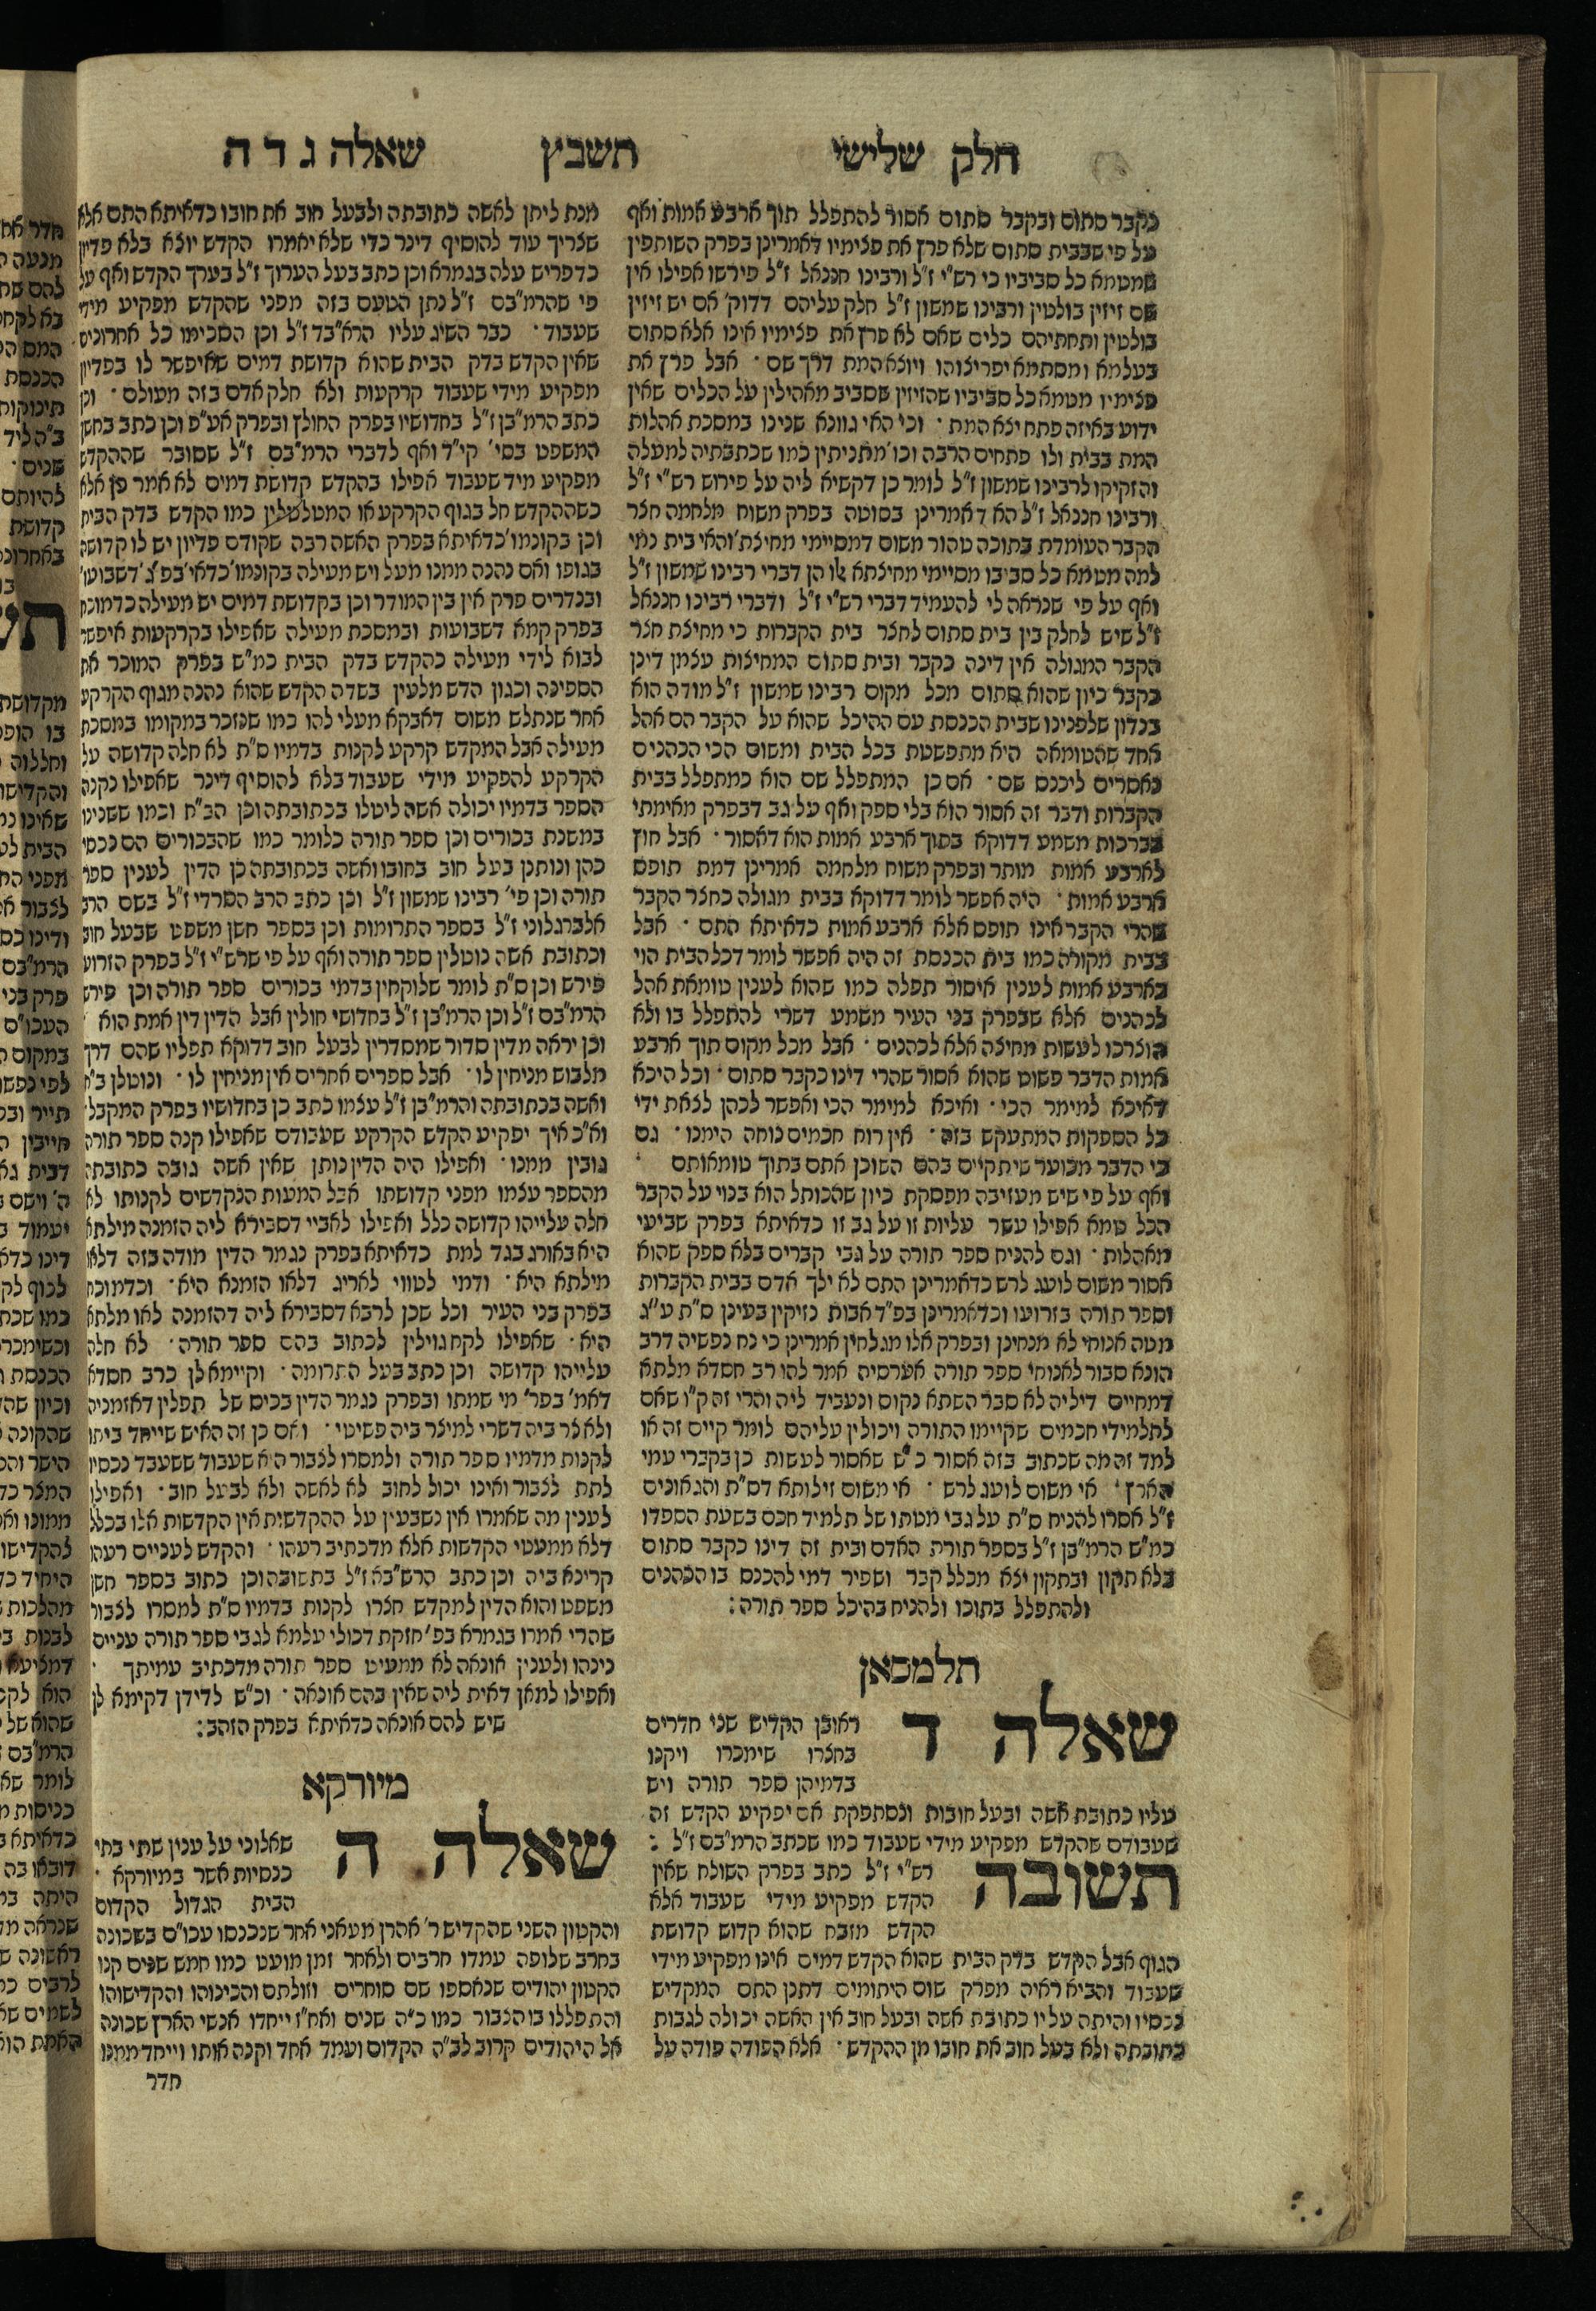 חלק שלישי תשבץ שאלה ג ד ה
כקבר סתום ובקבר סתום אסור להתפלל תוך ארבע אמות ואף
על פי שבבית סתום שלא פרץ את פצימיו דאמרינן בפרק השותפין
שמטמא כל סביביו כי רש״י ז״ל ורבינו חננאל ז״ל פירשו אפילו אין
שם זיזין בולטין ורבינו שמשון ז״ל חלק עליהם דדוק׳ אם יש זיזין
בולטין ותחתיהם כלים שאם לא פרץ את פצימיו אינו אלא סתום
בעלמא ומסתמא יפריצוהו ויוצא המת דרך שם · אבל פרץ את
פצימיו מטמא כל סביביו שהזיזין שסביב מאהילין על הכלים שאין
ידוע באיזה פתח יצא המת · וכי האי גוונא שנינו במסכת אהלות
המת בבית ולו פתחים הרבה וכו׳ מתניתין כמו שכתבתיה למעלה
והזקיקו לרבינו שמשון ז״ל לומר כן דקשיא ליה על פירוש רש״י ז״ל
ורבינו חננאל ז״ל הא דאמרינן בסוטה בפרק משוח מלחמה חצר
הקבר העומדת בתוכה טהור משום דמסיימי מחיצת׳ והאי בית נמי
למה מטמא כל סביבו מסיימי מחיצתא אלו הן דברי רבינו שמשון ז״ל
ואף על פי שנראה לי להעמיד דברי רש״י ז״ל ודברי רבינו חננאל
ז״ל שיש לחלק בין בית סתום לחצר בית הקברות כי מחיצת חצר
הקבר המגולה אין דינה כקבר ובית סתום המחיצות עצמן דינן
כקבר כיון שהוא סתום מכל מקום רבינו שמשון ז״ל מודה הוא
בנדון שלפנינו שבית הכנסת עם ההיכל שהוא על הקבר הם אהל
אחד שהטומאה היא מתפשטת בכל הבית ומשום הכי הכהנים
נאסרים ליכנס שם · אם כן המתפלל שם הוא כמתפלל בבית
הקברות ודבר זה אסור הוא בלי ספק ואף על גב דבפרק מאימתי
בברכות משמע דדוקא בתוך ארבע אמות הוא דאסור · אבל חוץ
לארבע אמות מותר ובפרק משוח מלחמה אמרינן דמת תופס
ארבע אמות · היה אפשר לומר דדוקא בבית מגולה כחצר הקבר
שהרי הקבר אינו תופס אלא ארבע אמות כדאיתא התם · אבל
בבית מקורה כמו בית הכנסת זה היה אפשר לומר דכל הבית הוי
כארבע אמות לענין איסור תפלה כמו שהוא לענין טומאת אהל
לכהנים אלא שבפרק בני העיר משמע דשרי להתפלל בו ולא
הוצרכו לעשות מחיצה אלא לכהנים · אבל מכל מקום תוך ארבע
אמות הדבר פשוט שהוא אסור שהרי דינו כקבר סתום · וכל היכא
דאיכא למימר הכי · ואיכא למימר הכי ואפשר לכהן לצאת ידי
כל הספקות המתעקש בזה · אין רוח חכמים נוחה הימנו · גם
כי הדבר מכוער שיתקיים בהם השוכן אתם בתוך טומאותם ·
ואף על פי שיש מעזיבה מפסקת כיון שהכותל הוא בנוי על הקבר
הכל טמא אפילו עשר עליות זו על גב זו כדאיתא בפרק שביעי
מאהלות · וגם להניח ספר תורה על גבי קברים בלא ספק שהוא
אסור משום לועג לרש כדאמרינן התם לא ילך אדם בבית הקברות
וספר תורה בזרועו וכדאמרינן בפ״ד אבות נזיקין בעינן ס״ת ע״ג
מטה אנוחי לא מנחינן ובפרק אלו מגלחין אמרינן כי נח נפשיה דרב
הונא סבור לאנוחי ספר תורה אערסיה אמר להו רב חסדא מלתא
דמחיים דיליה לא סבר השתא נקום ונעביד ליה והרי זה ק״ו שאם
לתלמידי חכמים שקיימו התורה ויכולין עליהם לומר קיים זה או
למד זה מה שכתוב בזה אסור כ״ש שאסור לעשות כן בקברי עמי
הארץ · אי משום לועג לרש · אי משום זילותא דס״ת והגאונים
ז״ל אסרו להניח ס״ת על גבי מטתו של תלמיד חכם בשעת הספדו
כמ״ש הרמ״בן ז״ל בספר תורת האדם ובית זה דינו כקבר סתום
בלא תקון ובתקון יצא מכלל קבר ושפיר דמי להכנס בו הכהנים
ולהתפלל בתוכו ולהניח בהיכל ספר תורה :
תלמסאן
שאלה ד
ראובן הקדיש שני חדרים
בחצרו שימכרו ויקנו
בדמיהן ספר תורה ויש
עליו כתובת אשה ובעל חובות ונסתפקת אם יפקיע הקדש זה
שעבודם שהקדש מפקיע מידי שעבוד כמו שכתב הרמ״בם ז״ל :
תשובה
רש״י ז״ל כתב בפרק השולח שאין
הקדש מפקיע מידי שעבוד אלא
הקדש מזבח שהוא קדוש קדושת
הגוף אבל הקדש בדק הבית שהוא הקדש דמים אינו מפקיע מידי
שעבוד והביא ראיה מפרק שום היתומים דתנן התם המקדיש
נכסיו והיתה עליו כתובת אשה ובעל חוב אין האשה יכולה לגבות
כתובתה ולא בעל חוב את חובו מן ההקדש · אלא הפודה פודה על
מנת ליתן לאשה כתובתה ולבעל חוב את חובו כדאיתא התם אלא
שצריך עוד להוסיף דינר כדי שלא יאמרו הקדש יוצא בלא פדיון
כדפריש עלה בגמרא וכן כתב בעל הערוך ז״ל בערך הקדש ואף על
פי שהרמ״בם ז״ל נתן הטעם בזה מפני שהקדש מפקיע מידי
שעבוד · כבר השיג עליו הרא״בד ז״ל וכן הסכימו כל אחרונים
שאין הקדש בדק הבית שהוא קדושת דמים שאיפשר לו בפדיון
מפקיע מידי שעבוד קרקעות ולא חלק אדם בזה מעולם · וכן
כתב הרמ״בן ז״ל בחדושיו בפרק החולץ ובפרק אע״פ וכן כתב בחשן
המשפט בסי׳ קי״ד ואף לדברי הרמ״בם ז״ל שסובר שההקדש
מפקיע מיד שעבוד אפילו בהקדש קדושת דמים לא אמר כן אלא
כשההקדש חל בגוף הקרקע או המטלטלין כמו הקדש בדק הבית
וכן בקונמו׳ כדאיתא בפרק האשה רבה שקודם פדיון יש לו קדושה
בגופו ואם נהנה ממנו מעל ויש מעילה בקונמו׳ כדאי׳ בפ״ג דשבועו׳
ובנדרים פרק אין בין המודר וכן בקדושת דמים יש מעילה כדמוכח
בפרק קמא דשבועות ובמסכת מעילה שאפילו בקרקעות איפשר
לבוא לידי מעילה כהקדש בדק הבית כמ״ש בפרק המוכר את
הספינה וכגון הדש מלעין בשדה הקדש שהוא נהנה מגוף הקרקע
אחר שנתלש משום דאבקא מעלי להו כמו שנזכר במקומו במסכת
מעילה אבל המקדש קרקע לקנות בדמיו ס״ת לא חלה קדושה על
הקרקע להפקיע מידי שעבוד בלא להוסיף דינר שאפילו נקנה
הספר בדמיו יכולה אשה ליטלו בכתובתה וכן הב״ח וכמו ששנינו
במשנת בכורים וכן ספר תורה כלומר כמו שהבכורים הם נכסי
כהן ונותנן בעל חוב בחובו ואשה בכתובתה כן הדין לענין ספר
תורה וכן פי׳ רבינו שמשון ז״ל וכן כתב הרב הסרדי ז״ל בשם הרב
אלברגלוני ז״ל בספר התרומות וכן בספר חשן משפט שבעל חוב
וכתובת אשה נוטלין ספר תורה ואף על פי שרש״י ז״ל בפרק הזרוע
פירש וכן ס״ת לומר שלוקחין בדמי בכורים ספר תורה וכן פירש
הרמ״בם ז״ל וכן הרמ״בן ז״ל בחדושי חולין אבל הדין דין אמת הוא
וכן יראה מדין סדור שמסדרין לבעל חוב דדוקא תפליו שהם דרך
מלבוש מניחין לו · אבל ספרים אחרים אין מניחין לו · ונוטלן ב״ח
ואשה בכתובתה והרמ״בן ז״ל עצמו כתב כן בחדושיו בפרק המקבל
וא״כ איך יפקיע הקדש הקרקע שעבודם שאפילו קנה ספר תורה
גובין ממנו · ואפילו היה הדין נותן שאין אשה גובה כתובתה
מהספר עצמו מפני קדושתו אבל המעות הנקדשים לקנותו לא
חלה עלייהו קדושה כלל ואפילו לאביי דסבירא ליה הזמנה מילתא
היא באורג בגד למת כדאיתא בפרק נגמר הדין מודה בזה דלאו
מילתא היא · ודמי לטווי לאריג דלאו הזמנא היא · וכדמוכח
בפרק בני העיר וכל שכן לרבא דסבירא ליה דהזמנה לאו מלתא
היא · שאפילו לקח גוילין לכתוב בהם ספר תורה · לא חלה
עלייהו קדושה וכן כתב בעל התרומה · וקיימא לן כרב חסדא
דאמ׳ בפר׳ מי שמתו ובפרק נגמר הדין בכיס של תפלין דאזמניה
ולא צר ביה דשרי למיצר ביה פשיטי · ואם כן זה האיש שייחד ביתו
לקנות מדמיו ספר תורה ולמסרו לצבור היא שעבוד ששעבד נכסיו
לתת לצבור ואינו יכול לחוב לא לאשה ולא לבעל חוב · ואפילו
לענין מה שאמרו אין נשבעין על ההקדשות אין הקדשות אלו בכלל
דלא ממעטי הקדשות אלא מדכתיב רעהו · והקדש לעניים רעהו
קרינא ביה וכן כתב הרש״בא ז״ל בתשובה וכן כתוב בספר חשן
משפט והוא הדין למקדש חצרו לקנות בדמיו ס״ת למסרו לצבור
שהרי אמרו בגמרא בפ׳ חזקת דכולי עלמא לגבי ספר תורה עניים
נינהו ולענין אונאה לא ממעיט ספר תורה מדכתיב עמיתך ·
ואפילו למאן דאית ליה שאין בהם אונאה · וכ״ש לדידן דקימא לן
שיש להם אונאה כדאיתא בפרק הזהב :
מיורקא
שאלה ה
שאלוני על ענין שתי בתי
כנסיות אשר במיורקא ·
הבית הגדול הקדום
והקטון השני שהקדיש ר׳ אהרן מעאני אחר שנכנסו עכו״ם בשכונה
בחרב שלופה עמדו חרבים ולאחר זמן מועט כמו חמש שנים קנו
הקטון יהודים שנאספו שם סוחרים וזולתם והכינוהו והקדישוהו
והתפללו בו הצבור כמו כ״ה שנים ואח״ז ייחדו אנשי הארץ שכונה
אל היהודים קרוב לב״ה הקדום ועמד אחד וקנה אותו וייחד ממנו
חדר